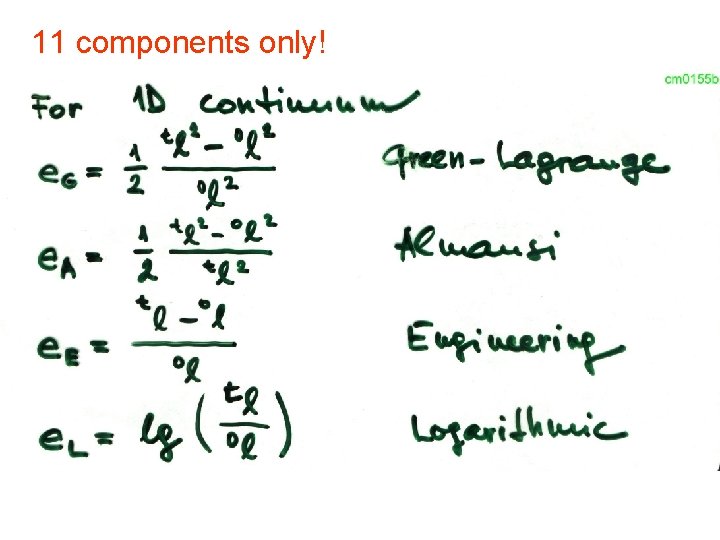 11 components only!
cm0155b
For 1D continuum
e_G = 1/2 (ᵗl² - ⁰l²)/⁰l² Green-Lagrange
e_A = 1/2 (ᵗl² - ⁰l²)/ᵗl² Almansi
e_E = (ᵗl - ⁰l)/⁰l Engineering
e_L = lg (ᵗl/⁰l) Logarithmic